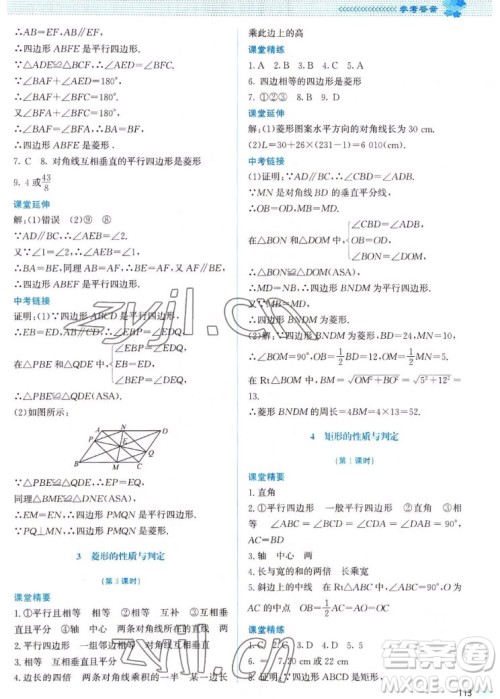 参考答案
∴AB=EF,∴AB//EF,
∴四边形 ABFE 是平行四边形.
∵△ABF≌△DAE,
∴∠BAF+∠AEF=180°,
∴∠BAF+∠AED=180°.
又∵∠BFA+∠AFC=180°,
∴∠BFA=∠BAF,∴AB=BF,
∴四边形 ABFE 是菱形.
7. C 8. 对角线互相垂直的平行四边形是菱形
9. 4 或43/8
课堂延伸
解:(1)错误 (2)⑨ ⑧
∵AD//BC,∴∠2=∠3.
∵∠1=∠2,∴∠1=∠3,
∴AB=BE,同理 AB=AF,∴AF=BE.
又∵AF//BE,∴四边形 ABEF 是平行四边形.
∵AF=AB,∴四边形 ABEF 是菱形.
中考链接
证明:(1)∵四边形 ABCD 是平行四边形,
∴EB=ED,AB//CD,∴∠EBP=∠EDQ.
在△PBE 和△QDE 中,
∠EBP=∠EDQ
EB=ED
∠BEP=∠DEQ
∴△PBE≌△QDE(ASA).
(2)如图所示:
A M B C D E N P Q
∵△PBE≌△QDE,∴EP=EQ.
同理△BME≌△DNE(ASA),∴EM=EN,
∴四边形 PMQN 是平行四边形.
∵PQ⊥MN,∴四边形 PMQN 是菱形.
3 菱形的性质与判定
(第3课时)
课堂精要
1. 平行且相等 相等 互补 互相垂直
平分且平分每一组对角 两条对角线所在的直线 两
2. 平行四边形 一组邻边相等 互相垂直
相等
3. 边长 底边 对角线乘积 每一条对角线
乘此边上的高
课堂精练
1. A 2. B 3. B 4. C 5. A
6. 四边相等的四边形是菱形
7. ①②③ 8. B 9. D
课堂延伸
解:(1)菱形图案水平方向的对角线长为 30 cm.
(2)L=30+26×(231-1)=6 010(cm).
中考链接
(1)证明:∵AD//BC,∴∠DMO=∠BNO.
∵MN 是对角线 BD 的垂直平分线,
∴OB=OD,MB=MD.
在△BON 和△DOM 中,
∠BNO=∠DMO
∠BON=∠DOM
OB=OD
∴△BON≌△DOM(AAS),∴OM=ON.
∵OB=OD,∴四边形 BNDM 为平行四边形.
∵MB=MD,∴四边形 BNDM 为菱形.
(2)解:∵四边形 BNDM 为菱形,
∴∠BOM=90°,OB=1/2BD=12,OM=1/2MN=5.
在 Rt△BOM 中,BM=√(OM²+BO²)=√(5²+12²)=13,
∴菱形 BNDM 的周长=4BM=4×13=52.
4 矩形的性质与判定
(第1课时)
课堂精要
1. 直角
2. 平行四边形 一般平行四边形 相等 直角
∠ABC =∠BCD =∠CDA =∠DAB = 90°
AC=BD
3. 轴 中心 两
4. 长与宽的和的两倍 长乘宽
5. 斜边上的中线 在 Rt△ABC 中,∠ABC=90°,
点 O 是 AC 的中点 BO=1/2AC
课堂精练
1. 轴 中心
5. 20 cm 或 22 cm
证明:∵四边形 ABCD 是矩形,
113